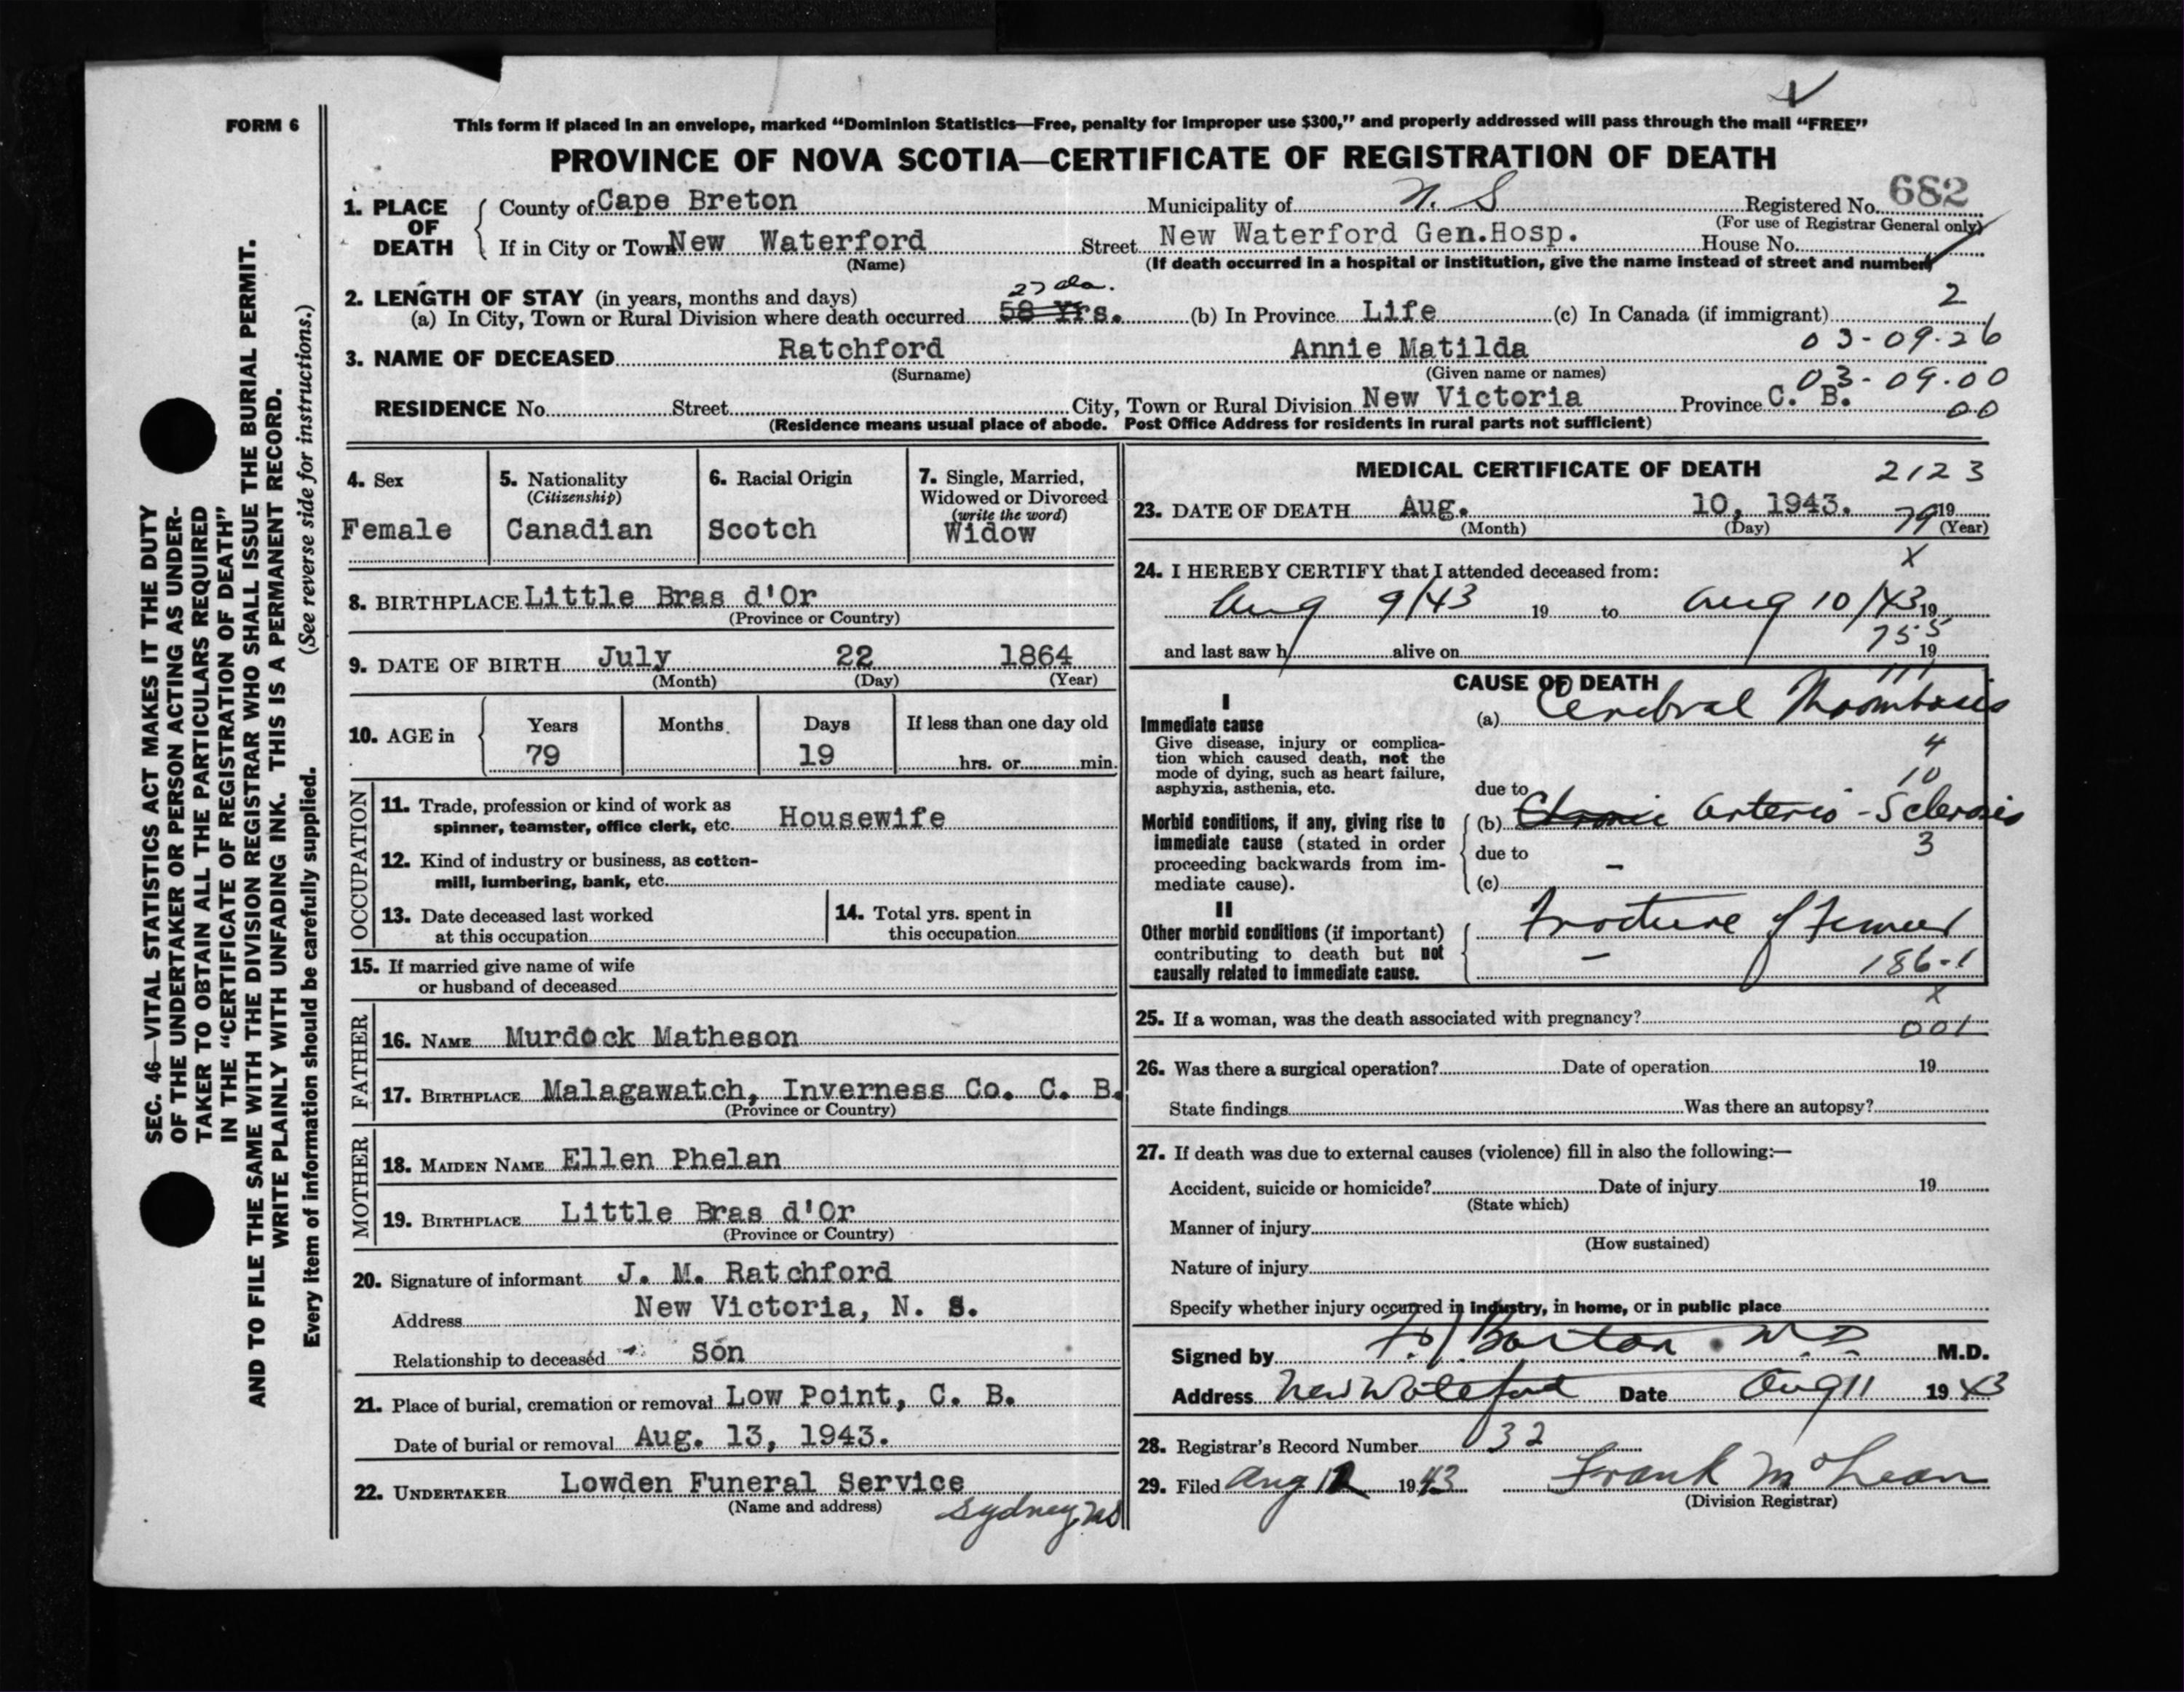 FORM 6
This form if placed in an envelope, marked “Dominion Statistics—Free, penalty for improper use $300,” and properly addressed will pass through the mail “FREE”
PROVINCE OF NOVA SCOTIA—CERTIFICATE OF REGISTRATION OF DEATH
1. PLACE OF DEATH
County of Cape Breton Municipality of N. S Registered No. 682
(For use of Registrar General only)
If in City or Town New Waterford Street New Waterford Gen.Hosp. House No.
(Name) (If death occurred in a hospital or institution, give the name instead of street and number)
2. LENGTH OF STAY (in years, months and days) 27 da. 2
(a) In City, Town or Rural Division where death occurred 58 Yrs. (b) In Province Life (c) In Canada (if immigrant)
3. NAME OF DECEASED Ratchford Annie Matilda 03-09-26
(Surname) (Given name or names) 03-09-00
RESIDENCE No. Street City, Town or Rural Division New Victoria Province C. B. 00
(Residence means usual place of abode. Post Office Address for residents in rural parts not sufficient)
4. Sex
Female
5. Nationality
(Citizenship)
Canadian
6. Racial Origin
Scotch
7. Single, Married,
Widowed or Divorced
(write the word)
Widow
8. BIRTHPLACE Little Bras d'Or
(Province or Country)
9. DATE OF BIRTH July 22 1864
(Month) (Day) (Year)
10. AGE in
Years Months Days If less than one day old
79 19 hrs. or min.
OCCUPATION
11. Trade, profession or kind of work as
spinner, teamster, office clerk, etc. Housewife
12. Kind of industry or business, as cotton-
mill, lumbering, bank, etc.
13. Date deceased last worked
at this occupation
14. Total yrs. spent in
this occupation
15. If married give name of wife
or husband of deceased
FATHER
16. NAME Murdock Matheson
17. BIRTHPLACE Malagawatch, Inverness Co. C. B.
(Province or Country)
MOTHER
18. MAIDEN NAME Ellen Phelan
19. BIRTHPLACE Little Bras d'Or
(Province or Country)
20. Signature of informant J. M. Ratchford
Address New Victoria, N. S.
Relationship to deceased Son
21. Place of burial, cremation or removal Low Point, C. B.
Date of burial or removal Aug. 13, 1943.
22. UNDERTAKER Lowden Funeral Service
(Name and address) Sydney NS
MEDICAL CERTIFICATE OF DEATH 2123
23. DATE OF DEATH Aug. 10, 1943. 79 19
(Month) (Day) (Year)
X
24. I HEREBY CERTIFY that I attended deceased from:
Aug 9/43 19 to Aug 10/43 19
755
and last saw h alive on 19
111
CAUSE OF DEATH
I
Immediate cause
Give disease, injury or complica-
tion which caused death, not the
mode of dying, such as heart failure,
asphyxia, asthenia, etc.
(a) Cerebral Thombosis
4
10
due to
Morbid conditions, if any, giving rise to
immediate cause (stated in order
proceeding backwards from im-
mediate cause).
(b) Chronic Arterio-Sclerosis
due to 3
(c) –
II
Other morbid conditions (if important)
contributing to death but not
causally related to immediate cause.
Fracture of Femur
– 186-1
X
25. If a woman, was the death associated with pregnancy?
001
26. Was there a surgical operation? Date of operation 19
State findings Was there an autopsy?
27. If death was due to external causes (violence) fill in also the following:—
Accident, suicide or homicide? Date of injury 19
(State which)
Manner of injury
(How sustained)
Nature of injury
Specify whether injury occurred in industry, in home, or in public place
Signed by Barton M.D. M.D.
Address New Waterford Date Aug 11 1943
28. Registrar's Record Number 32
29. Filed Aug 12 1943 Frank McLean
(Division Registrar)
SEC. 46—VITAL STATISTICS ACT MAKES IT THE DUTY
OF THE UNDERTAKER OR PERSON ACTING AS UNDER-
TAKER TO OBTAIN ALL THE PARTICULARS REQUIRED
IN THE “CERTIFICATE OF REGISTRATION OF DEATH”
AND TO FILE THE SAME WITH THE DIVISION REGISTRAR WHO SHALL ISSUE THE BURIAL PERMIT.
WRITE PLAINLY WITH UNFADING INK. THIS IS A PERMANENT RECORD.
Every item of information should be carefully supplied. (See reverse side for instructions.)